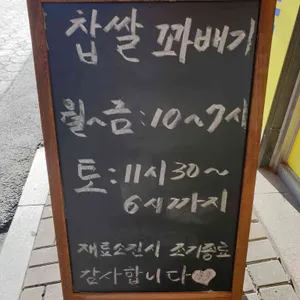 찹쌀 꽈배기
월~금:10~7시
토:11시30~
6시까지
재료소진시 조기종료
감사합니다♡